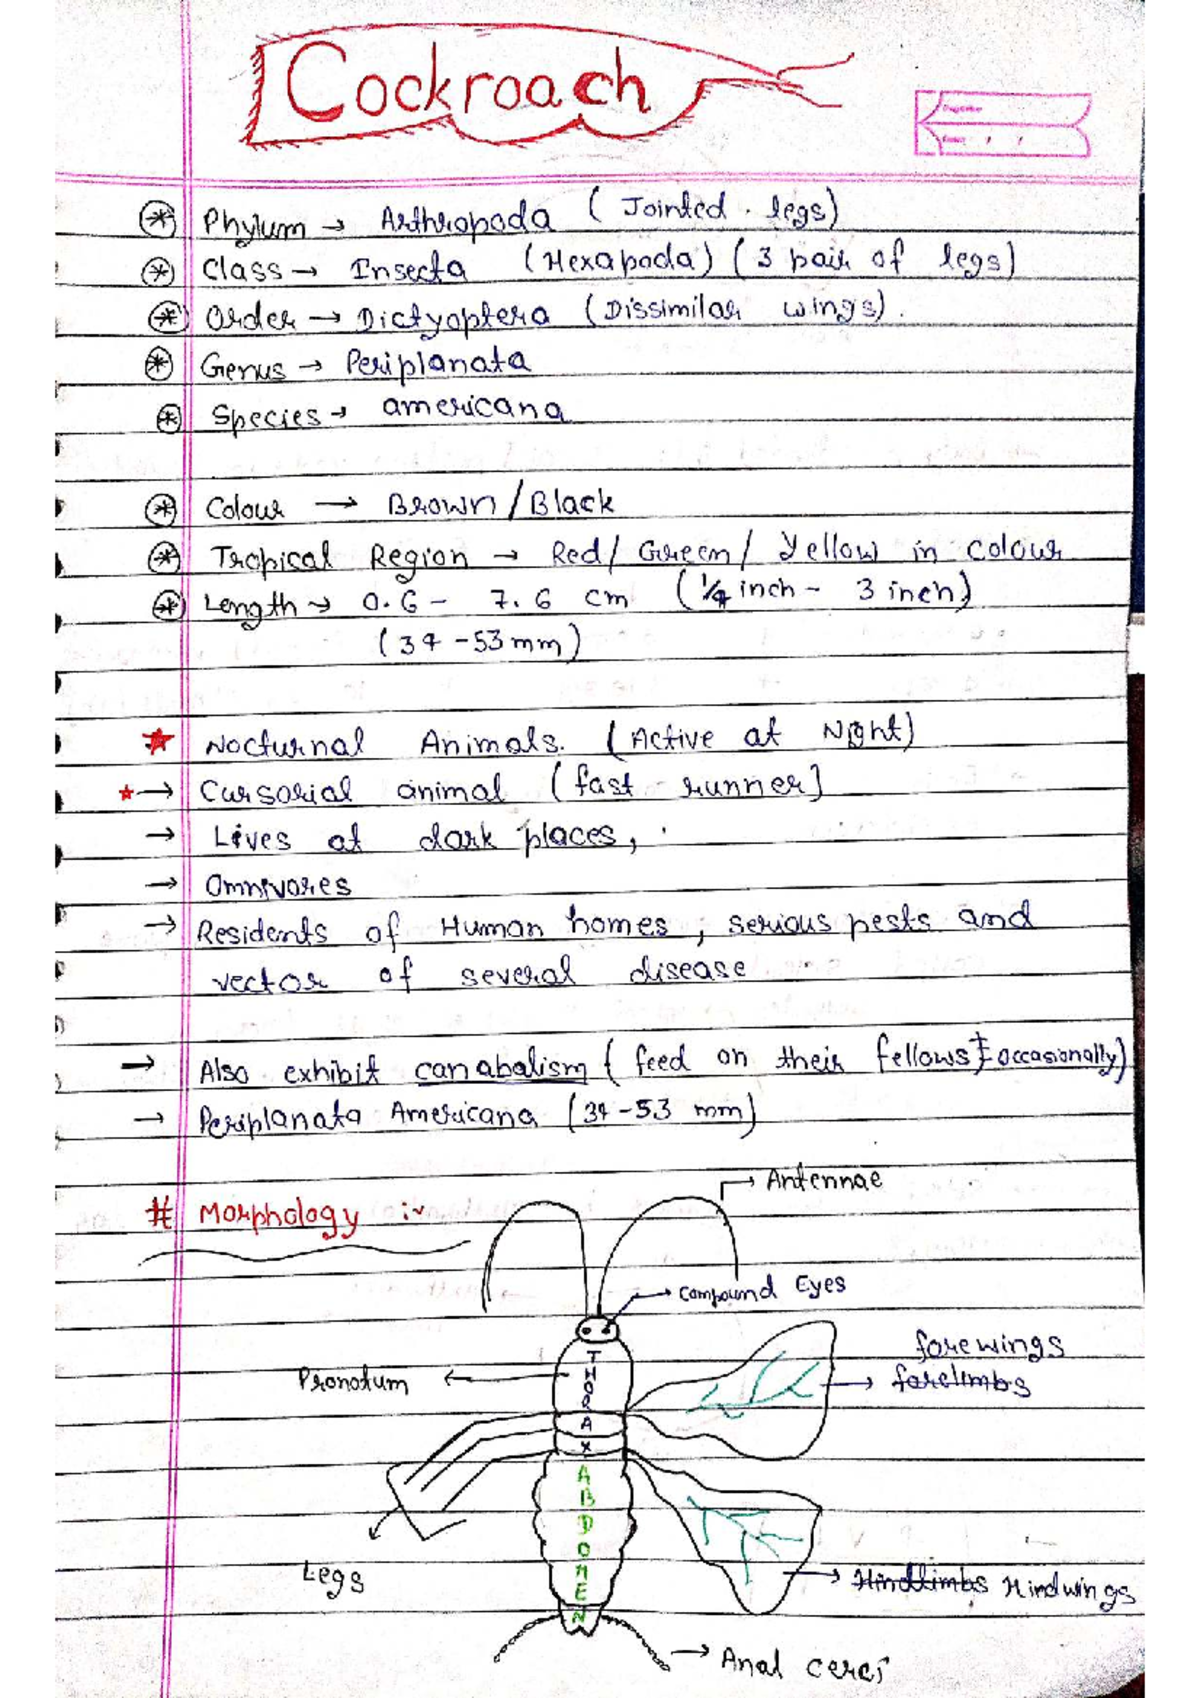 Cockroach
Phylum → Arthropoda (Jointed legs)
Class → Insecta (Hexapoda) (3 pair of legs)
Order → Dictyoptera (Dissimilar wings).
Genus → Periplanata
Species → americana
Colour → Brown/Black
Tropical Region → Red/Green/Yellow in colour
Length → 0.6 - 7.6 cm (1/4 inch - 3 inch)
(34-53mm)
Nocturnal Animals. (Active at Night)
Cursorial animal (fast runner)
→ Lives at dark places,
→ Omnivores
→ Residents of Human homes, serious pests and
vector of several disease
→ Also exhibit canabalism (feed on their fellows occasionally)
→ Periplanata Americana (34-53 mm)
# Morphology :-
Antennae
Compound Eyes
forewings
Pronotum
forelimbs
THORAX
ABDOMEN
Legs
Hindlimbs Hindwings
Anal cerci